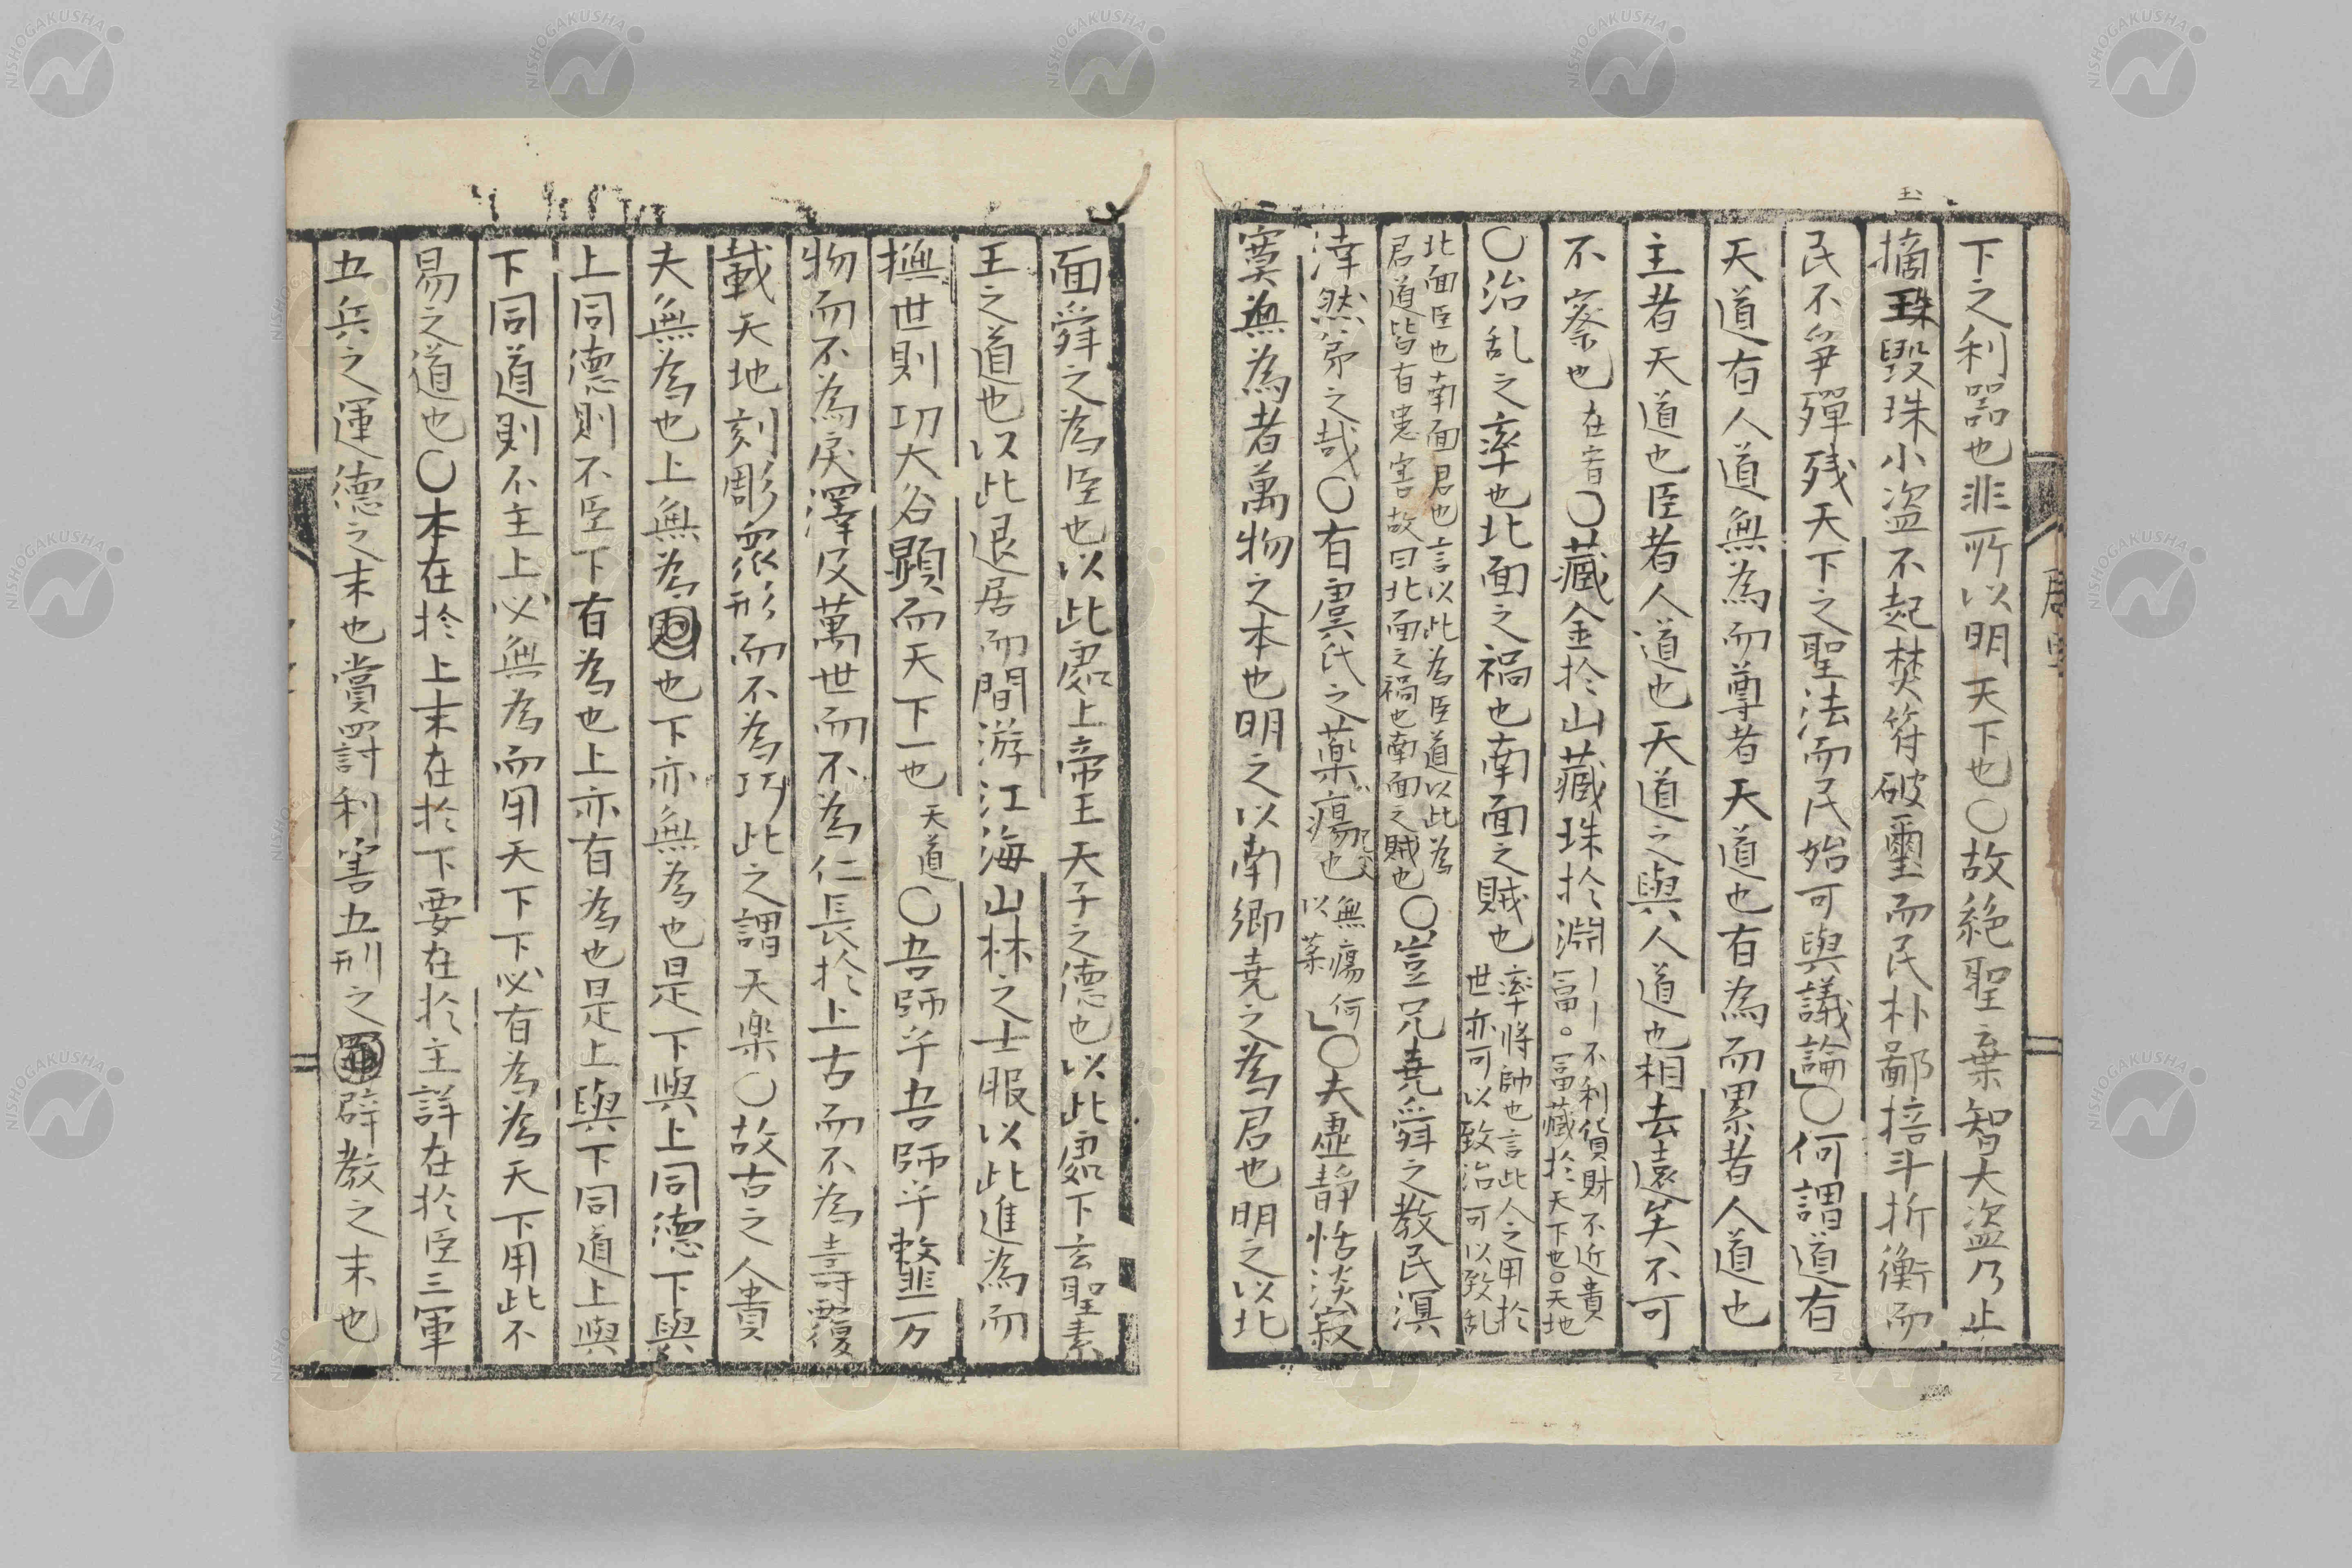 下之利器也非所以明天下也〇故絶聖棄智大盗乃止
玉
摘珠毀珠小盗不起焚符破璽而民朴鄙掊斗折衡而
民不爭殫残天下之聖法而民始可與議論〇何謂道有
天道有人道無為而尊者天道也有為而累者人道也
主者天道也臣者人道也天道之與人道也相去遠矣不可
不察也在宥〇藏金於山藏珠於淵〡〡不利貨財不近貴
冨。冨藏於天下也〇天地
〇治乱之率也北面之禍也南面之賊也率将帥也言此人之用於
世亦可以致治可以致乱
北面臣也南面君也言以此為臣道以此為
君道皆有患害故曰北面之禍也南面之賊也〇豈兄堯舜之教民溟
涬然弟之哉〇有虞氏之薬瘍也無瘍何
以薬〇夫虚静恬淡寂
寞無為者萬物之本也明之以南郷堯之為君也明之以北
面舜之為臣也以此處上帝王天子之德也以此處下玄聖素
王之道也以此退居而間游江海山林之士服以此進為而
撫世則功大名顕而天下一也天道〇吾師乎吾師乎䪡万
物而不為戾澤及萬世而不為仁長於上古而不為壽覆
載天地刻彫衆形而不為巧此之謂天楽〇故古之人貴
夫無為也上無為也下亦無為也是下與上同德下與
上同德則不臣下有為也上亦有為也是上與下同道上與
下同道則不主上必無為而用天下下必有為為天下用此不
易之道也〇本在於上末在於下要在於主詳在於臣三軍
五兵之運德之末也賞罰利害五刑之辟教之末也